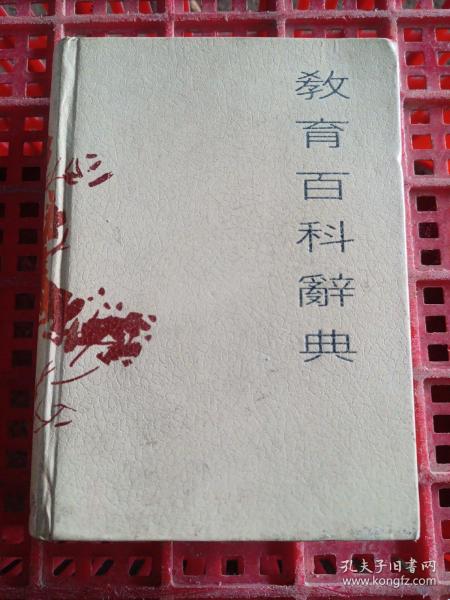 教育百科辭典
孔夫子旧书网
www.kongfz.com